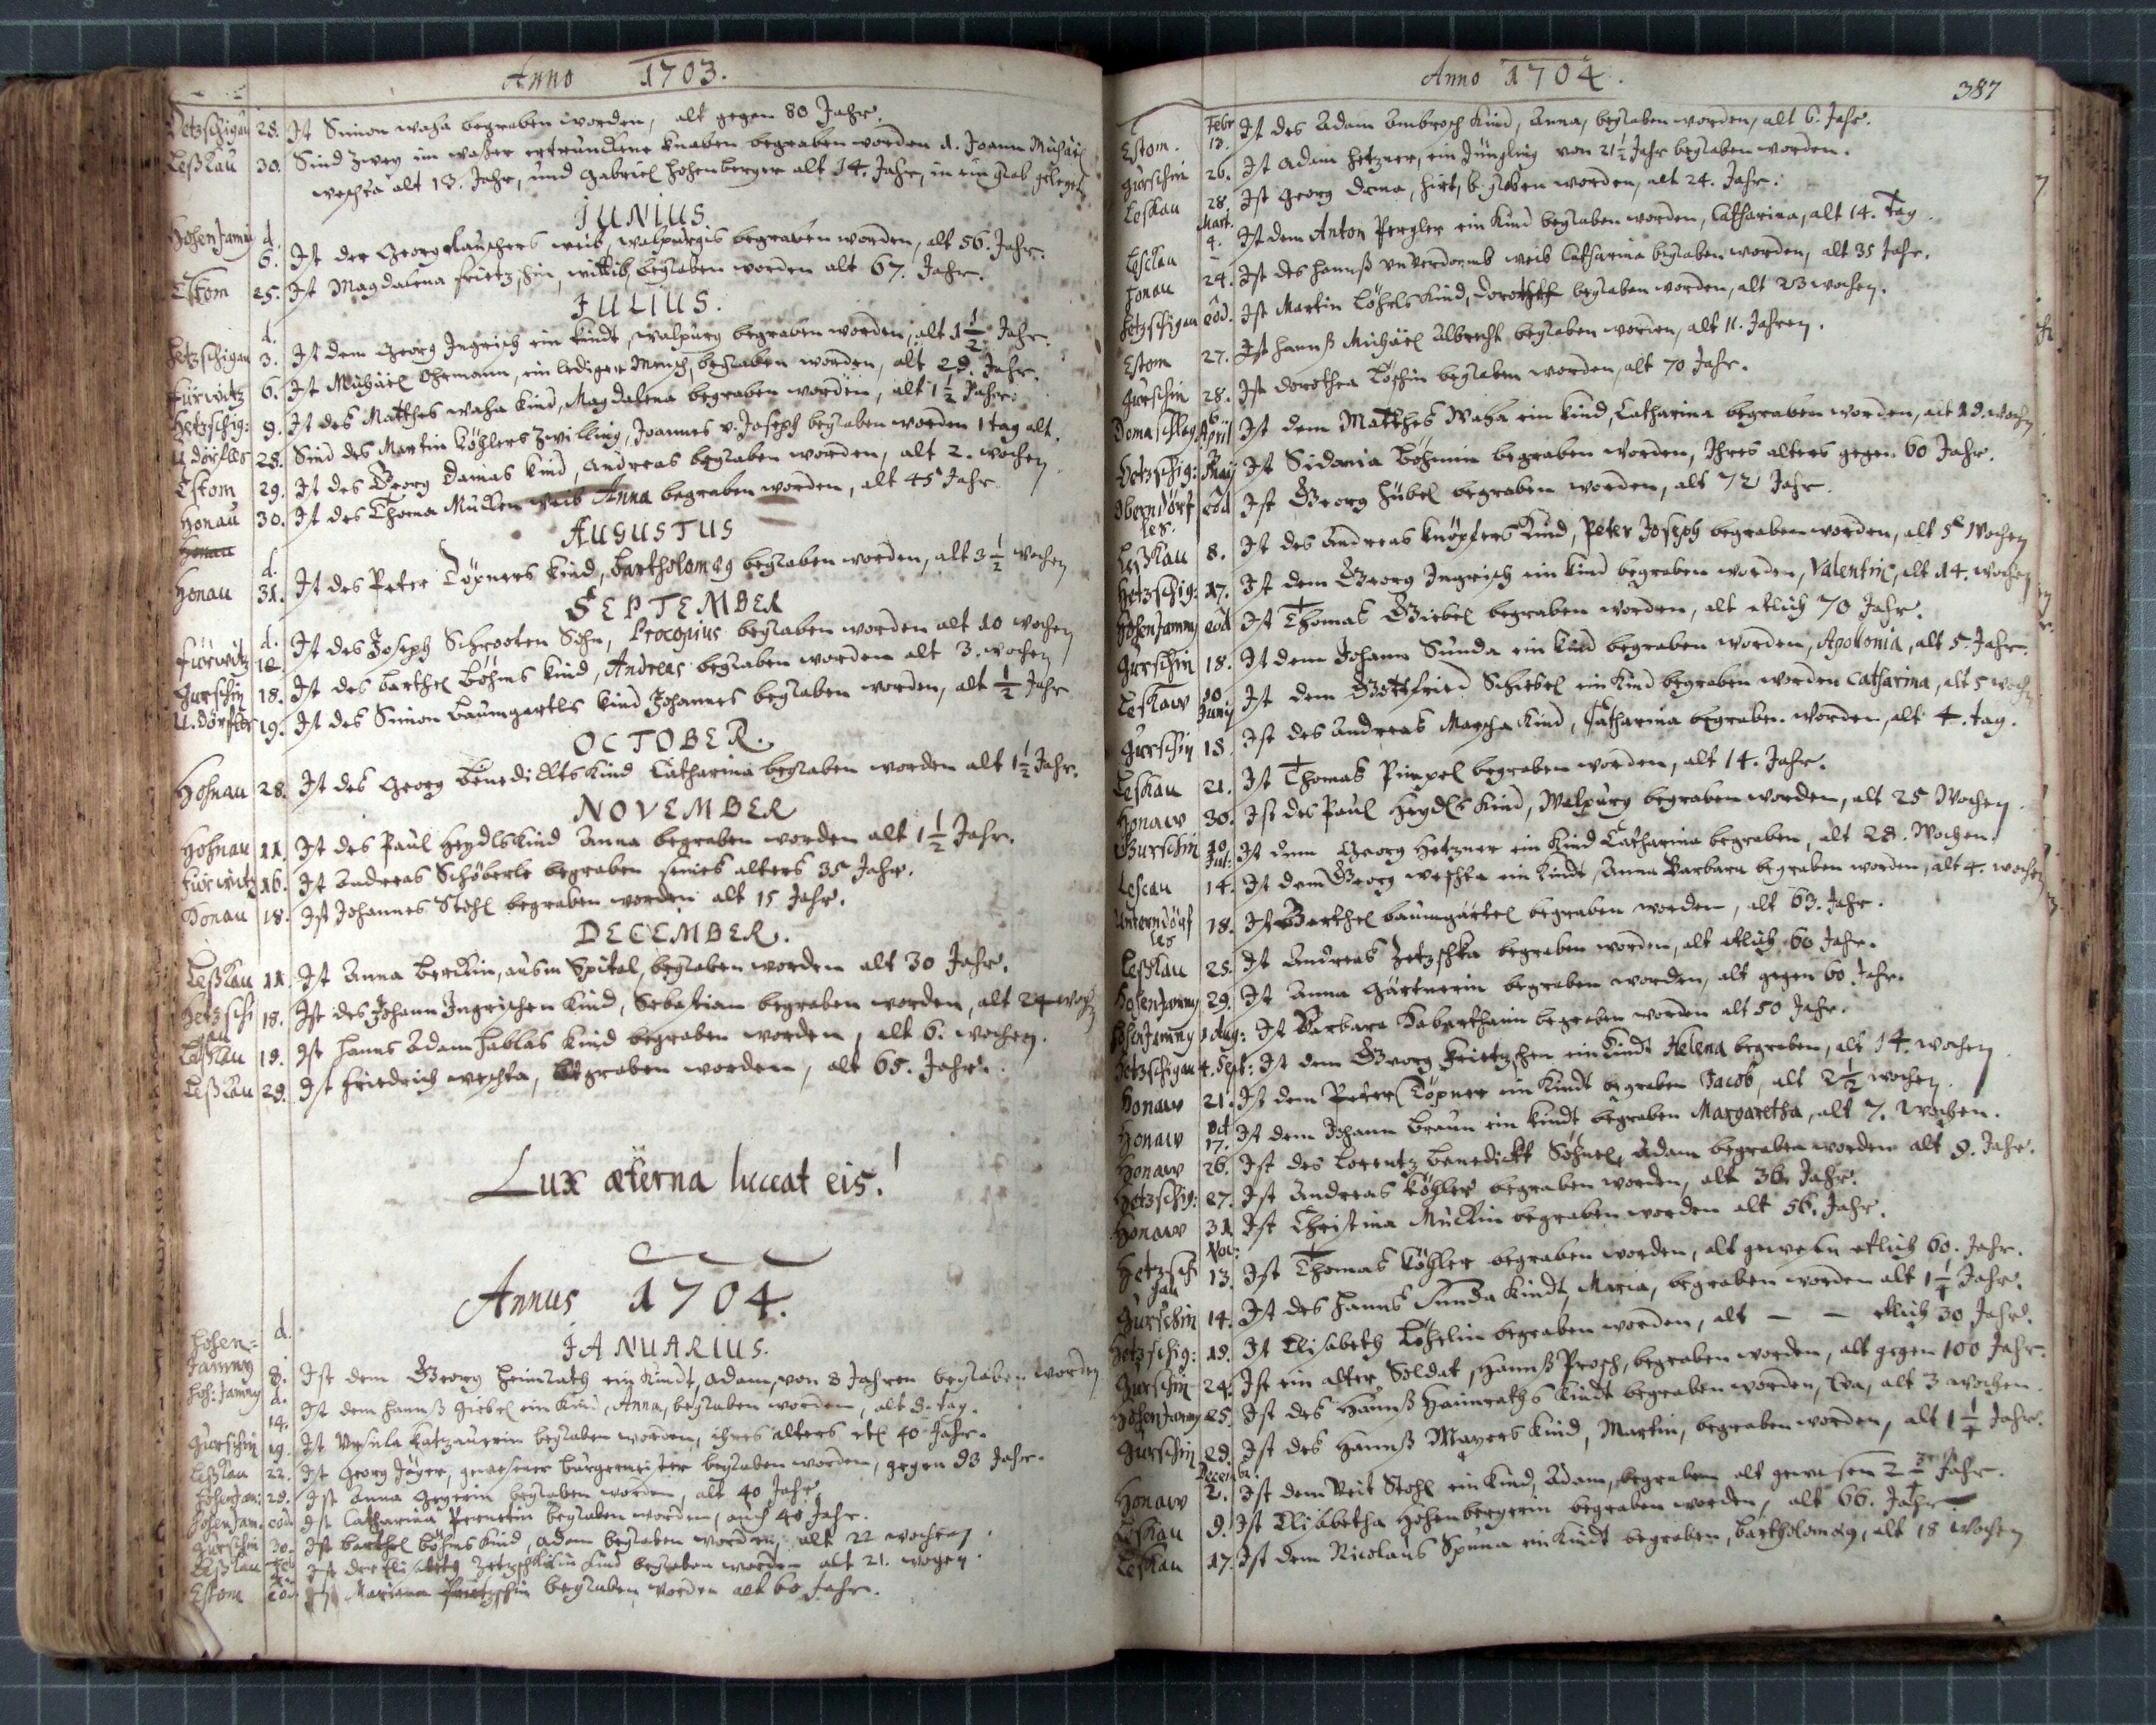 Anno 1703.
Hetzschigau 28. Ist Simon waha begraben worden, alt gegen 80 Jahr.
Leßkau 30. Sind zwey im waßer ertrunckene Knaben begraben worden d. Joann Michäel
weschta alt 13. Jahr, und Gabriel Hohenberger alt 14. Jahr, in ein grab gelegt
JUNIUS.
Hohen Jamny d. 6. Ist der Georg weib, walpurgis begraben worden, alt 56. Jahr.
Tstom 25. Ist Magdalena frietzschin, wittib, begraben worden alt 67. Jahr.
JULIUS.
Hetzschigau d. 3. Ist dem Georg Ingrisch ein kindt, walpurg begraben worden, alt 1 1/2 Jahr.
Fürwitz 6. Ist Michäel Ohrmann, ein lediger Mensch, begraben worden, alt 29. Jahr.
Hetzschig: 9. Ist des Matthes waha kind, Magdalena begraben worden, alt 1 1/2 Jahr.
U. dörfles 28. Sind des Martin Köhlers zwilling, Joannes v. Joseph begraben worden 1 tag alt.
Tstom 29. Ist des Georg Damas kind, Andreas begraben worden, alt 2. wochen
Honau 30. Ist des Thoma Mucken weib Anna begraben worden, alt 45 Jahr
Honau
AUGUSTUS
Honau d. 31. Ist des Peter Töpners kind, Bartholomæy begraben worden, alt 3 1/2 wochen
SEPTEMBER
Fürwitz d. 12. Ist des Joseph Schrooten Sohn, Procopius begraben worden alt 10 wochen
Gurschin 18. Ist des Barthel Böhms kind, Andreas begraben worden alt 3. wochen
U. dörfles 19. Ist des Simon Baumgartls kind Johannes begraben worden, alt 1/2 Jahr
OCTOBER.
Hohnau 28. Ist des Georg Benedickts kind Catharina begraben worden alt 1 1/2 Jahr.
NOVEMBER
Hohnau 11. Ist des Paul Heydls kind Anna begraben worden alt 1 1/2 Jahr.
Fürwitz 16. Ist Andreas Schöberle begraben seines alters 35 Jahr.
Honau 18. Ist Johannes Stohl begraben worden alt 15 Jahr.
DECEMBER.
Leßkau 11. Ist Anna Berckin, ausm Spital, begraben worden alt 30 Jahr.
Hetzschigau 18. Ist des Johann Ingrischen kind, Sebastian begraben worden, alt 24 woch
Leßkau 19. Ist Hanns Adam Hablas kind begraben worden, alt 6. wochen.
Leßkau 29. Ist friedrich weschta, begraben worden, alt 65. Jahr.
Lux æterna luceat eis!
Annus 1704.
JANUARIUS.
Hohen-Jamny d. 8. Ist dem Georg Heimrath ein kindt, Adam, von 8 Jahren begraben worden
Hoh: Jamny d. 14. Ist dem Hannß Giebel ein kind, Anna, begraben worden, alt 9. tag.
Gurschin 19. Ist Ursula Katzauerin begraben worden, ihres alters etl 40 Jahr.
Leßkau 22. Ist Georg Jäger, gewesener burgermeister begraben worden, gegen 93 Jahr.
HohenJam: 28. Ist Anna begraben worden, alt 40 Jahr
HohenJam. eod. Ist Catharina begraben worden, auch 40 Jahr.
Gurschin 30. Ist Barthel Böhms kind, Adam begraben worden, alt 22 wochen.
Leßkau Ist der Elisabeth kind begraben worden alt 21. wochen.
Estom eod. Ist Mariana frietzschin begraben worden alt 60 Jahr.
Anno 1704.
387
Estom. Febr 13. Ist des Adam Ambrosch kind, Anna, begraben worden, alt 6. Jahr.
Gurschin 26. Ist Adam Hetzner, ein Jüngling von 21 1/2 Jahr begraben worden.
Leskau 28. Ist Georg Dama, Hirt, begraben worden, alt 24. Jahr.
Lesckau Mart. 4. Ist dem Anton Pergler ein kind begraben worden, Catharina, alt 14. Tag.
Honau 24. Ist des Hannß Unverdormb weib Catharina begraben worden, alt 35 Jahr.
Hetzschigau eod. Ist Martin Köhels kind, begraben worden, alt 23 wochen.
Estom 27. Ist Hannß Michäel Albrecht begraben worden, alt 11. Jahren.
Gurschin 28. Ist Dorothea Löschin begraben worden, alt 70 Jahr.
Domaschlag 6 April Ist dem Matthes Waha ein kind, Catharina begraben worden, alt 19. wochen
Hetzschig: Maij Ist Sidonia Böhmin begraben worden, Ihres alters gegen 60 Jahr.
Oberndörfles. eod Ist Georg Hübel begraben worden, alt 72 Jahr.
Leßkau 8. Ist des Andreas Knöpfers Kind, Peter Joseph begraben worden, alt 5 Wochen
Hetzschig: 17. Ist dem Georg Ingrisch ein kind begraben worden, Valentin, alt 14. wochen
HohenJamny eod Ist Thomas Giebel begraben worden, alt etlich 70 Jahr.
Gurschin 18. Ist dem Johann Sunda ein kind begraben worden, Apolonia, alt 5. Jahr.
Leskaw 10 Junij Ist dem Gottfried Schiebel ein kind begraben worden Catharina, alt 5 woch
Gurschin 18. Ist des Andreas Mascha Kind, Catharina begraben worden, alt 4. tag.
Leskau 21. Ist Thomas Pimpel begraben worden, alt 14. Jahr.
Honaw 30. Ist des Paul Heydls kind, Walpurg begraben worden, alt 25 Wochen.
Gurschin 10 Jul: Ist dem Georg Hetzner ein kind Catharina begraben, alt 28. Wochen.
Lescau 14. Ist dem Georg weschka ein kindt, Anna Barbara begraben worden, alt 4. wochen
Unterndörfles 18. Ist Barthel Baumgärtel begraben worden, alt 63. Jahr.
Leßkau 25. Ist Andreas Zetzschka begraben worden, alt etlich 60 Jahr.
HohenJamny 29. Ist Anna Gärtnerin begraben worden, alt gegen 60 Jahr.
HohenJamny 1 Aug: Ist Barbara begraben worden alt 50 Jahr.
Hetzschigau 4. Sept: Ist dem Georg Frietzschen ein kindt Helena begraben, alt 14. wochen
Honaw 21. Ist dem Peter Töpner ein Kindt begraben Jacob, alt 2 1/2 wochen.
Honaw Oct 17. Ist dem Johann Braun ein kindt begraben Margaretha, alt 7. wochen.
Honaw 26. Ist des Lorentz Benedickt Söhnel, Adam begraben worden alt 9. Jahr.
Hetzschig: 27. Ist Andreas Köhler begraben worden, alt 36. Jahr.
Honaw 31 Ist Christina Muckin begraben worden alt 56. Jahr.
Hetzschigau Nov: 13. Ist Thomas Köhler begraben worden, alt gewesen etlich 60. Jahr.
Gurschin 14. Ist des Hanns Sunda Kindt, Maria, begraben worden alt 1 1/4 Jahr.
Hetzschig: 19. Ist Elisabeth Köhelin begraben worden, alt — — etlich 30 Jahr.
Gurschin 24. Ist ein alter Soldat, Hannß Prosch, begraben worden, alt gegen 100 Jahr.
HohenJamny 25. Ist des Hannß Haimraths Kindt begraben worden, Eva, alt 3 wochen.
Gurschin 29. Ist des Hannß Mayers Kind, Martin, begraben worden, alt 1 1/4 Jahr.
Honaw Decemb. 2. Ist dem Veit Stohl ein kind, Adam, begraben alt gewesen 2 Jahr.
Leskau 9. Ist Elisabetha Hohenbergerin begraben worden, alt 66. Jahr
Leskau 17. Ist dem Nicolaus Spuna ein Kindt begraben, Bartholomæy, alt 18 Wochen